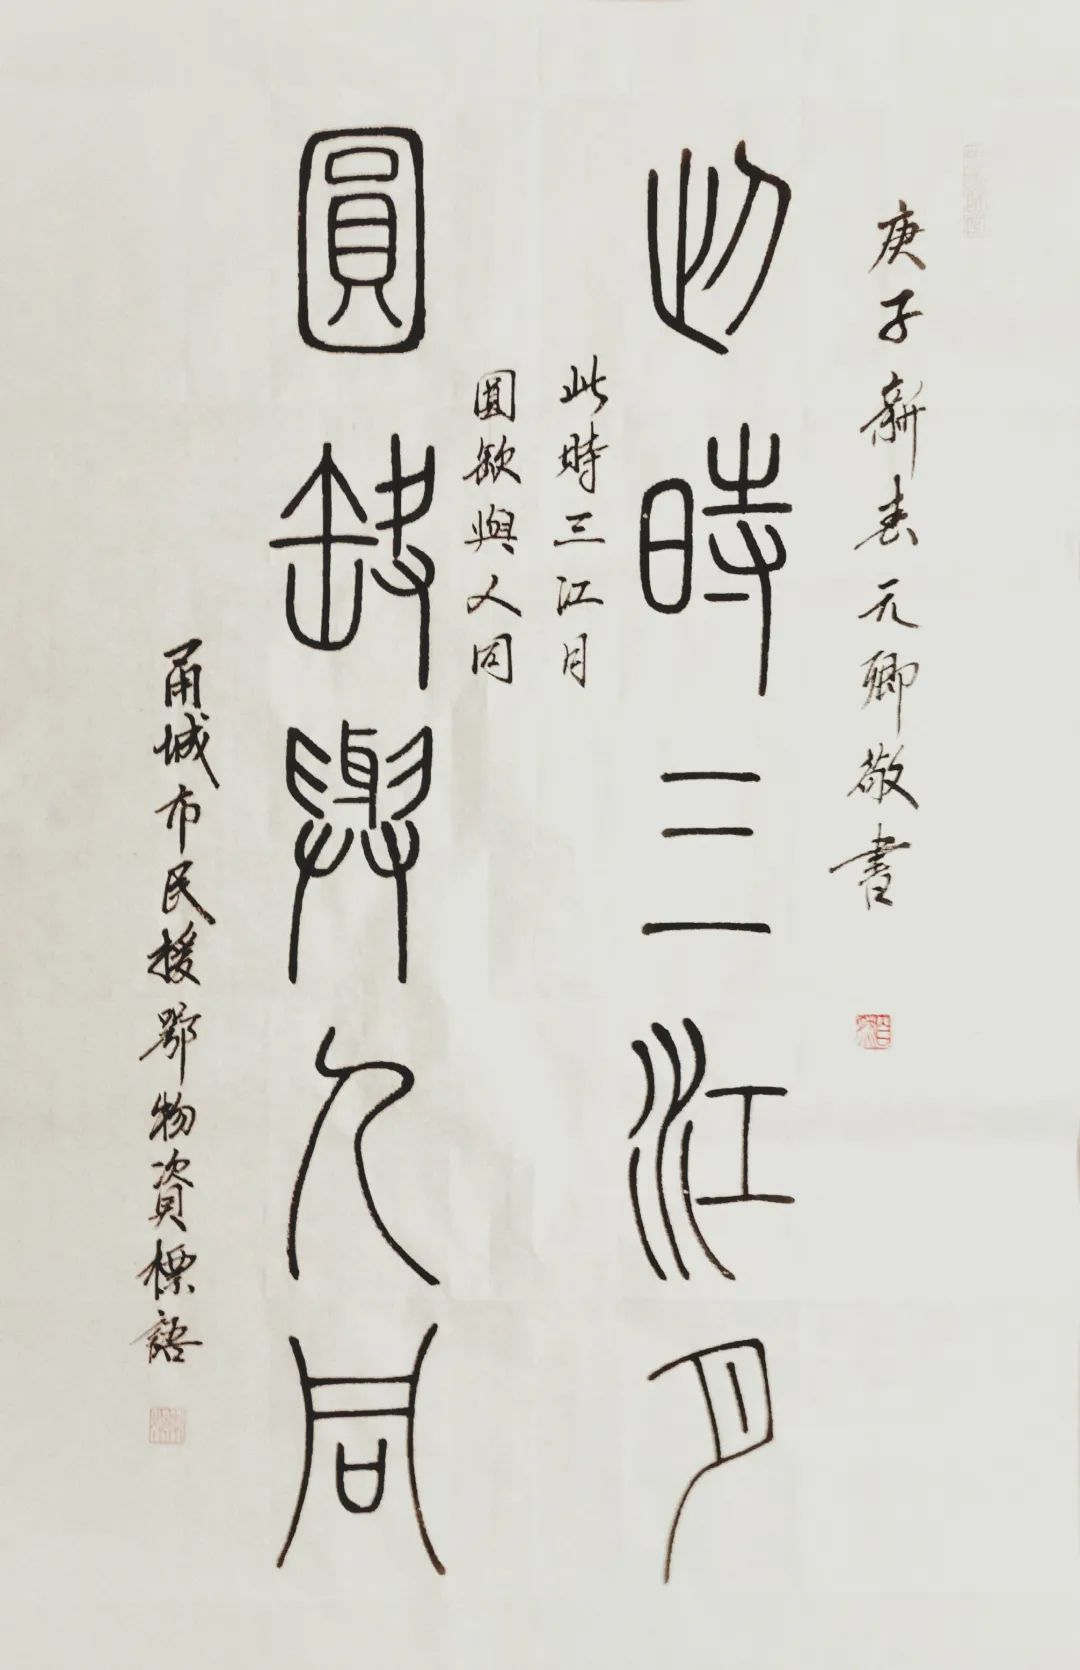 庚子新春元卿敬書
此時三江月
此時三江月
圓缺與人同
圓缺與人同
甬城市民援鄂物資標語